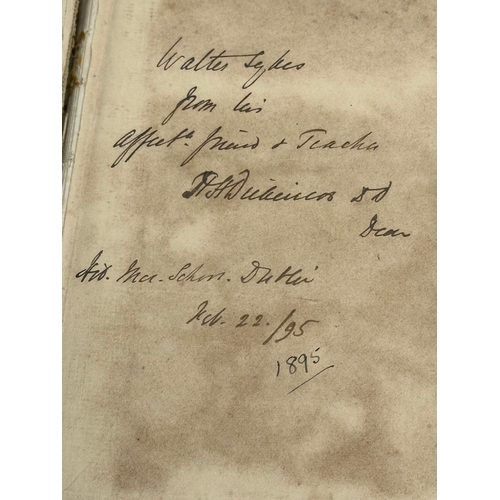 Walter Sykes
from his
affect. friend & Teacher
H H Dickinson DD
Dean
Div. School. Dublin
Feb. 22. /95
1895